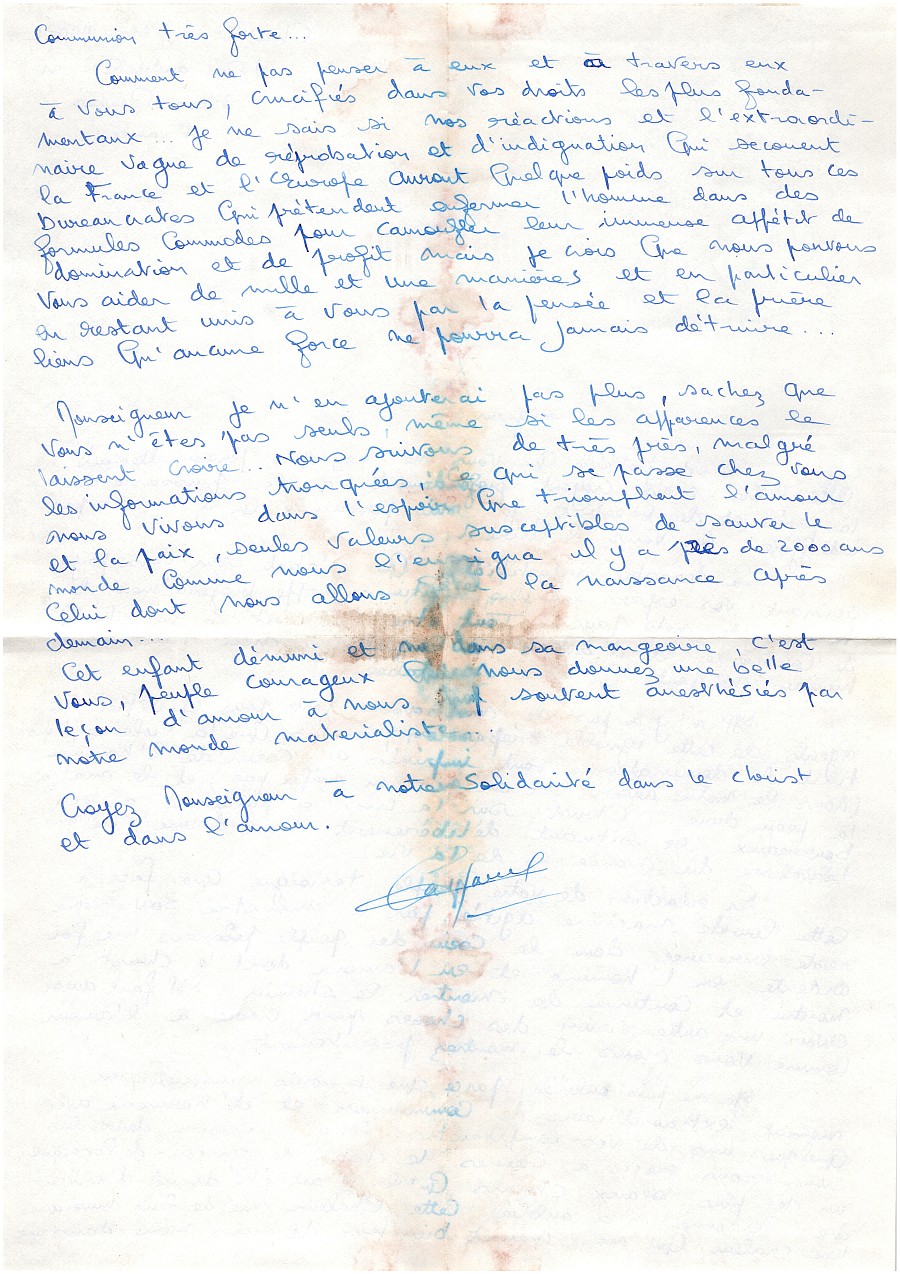 Communion très forte...
Comment ne pas penser à eux et à travers eux
à vous tous, crucifiés dans vos droits les plus fonda-
mentaux... Je ne sais si nos réactions et l'extraordi-
naire vague de réprobation et d'indignation qui secouent
la France et l'Europe auront quelque poids sur tous ces
bureaucrates qui prétendent enfermer l'homme dans des
formules commodes pour camoufler leur immense appétit de
domination et de profit mais je crois que nous pouvons
vous aider de mille et une manières et en particulier
en restant unis à vous par la pensée et la prière
liens qu'aucune force ne pourra jamais détruire...
Monseigneur je n'en ajouterai pas plus, sachez que
vous n'êtes pas seuls, même si les apparences le
laissent croire... Nous suivons de très près, malgré
les informations tronquées, ce qui se passe chez vous
nous vivons dans l'espoir que triomphent l'amour
et la paix, seules valeurs susceptibles de sauver le
monde comme nous l'enseigna il y a près de 2000 ans
Celui dont nous allons la naissance après
demain...
Cet enfant démuni et nu dans sa mangeoire, c'est
vous, peuple courageux nous donnez une belle
leçon d'amour à nous souvent anesthésiés par
notre monde matérialiste...
Croyez Monseigneur à notre Solidarité dans le Christ
et dans l'amour.